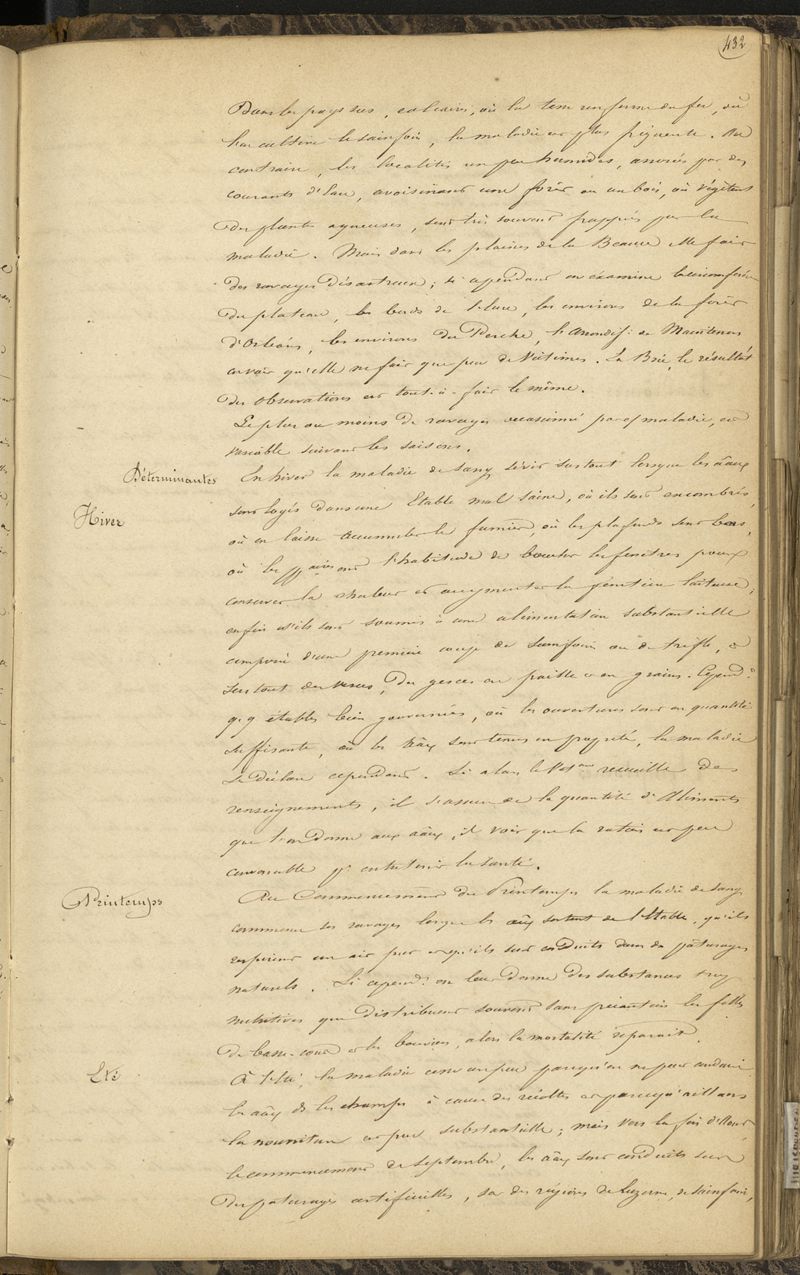 432
Dans les pays secs, calcaires, où la terre renferme du fer, où
l'on cultive le sainfoin, la maladie est plus fréquente. Au
contraire, les localités un peu humides, arrosées par des
courants d'Eau, avoisinant une forêt ou un bois, où végètent
des plantes aqueuses, sont très souvent frappées par la
maladie. Mais dans les plaines de la Beauce elle fait
des ravages désastreux; si cependant on examine la circonférence
du plateau, les bords de l'Eure, les environs de la forêt
d'Orléans, les environs du Perche, l'Arrondis. de Maintenon
on voit qu'elle ne fait que peu de Victimes. La Brie, le résultat
des observations est tout-à-fait le même.
Le plus ou moins de ravages occasionné par maladie, est
variable suivant les saisons.
Déterminantes
En hiver la maladie de sang sévit surtout lorsque les aâux
Hiver
sont logés dans une Etable mal saine, où ils sont encombrés,
où on laisse accumuler le fumier, où les plafonds sont bas,
où les ont l'habitude de boucher les fenêtres pour
conserver la chaleur et augmenter la sécrétion laiteuse,
enfin s'ils sont soumis à une alimentation substantielle
composée d'une première coupe de sainfoin ou de trèfle, et
surtout des vesces, des gesces en paille et en grains. Cepend.t
q.q étables bien gouvernées, où les ouvertures sont en quantité
suffisante, où les aâux sont tenus en propreté, la maladie
se déclare cependant. Si alors le Vet.re recueille des
renseignements, il s'assure de la quantité d'Aliments
que l'on donne aux aâux, il voit que la ration est peu
convenable pr entretenir la santé.
Printemps
Au Commencement du Printemps la maladie de sang
commence ses ravages lorsque les aâux sortent de l'Etable, qu'ils
respirent un air pur et qu'ils sont conduits dans des pâturages
naturels. Si cepend.t on leur donne des substances trop
nutritives que distribuent souvent sans précaution les filles
de basse-cour et les bouviers, alors la mortalité reparait.
Eté
A l'Eté, la maladie cesse un peu parcequ'on ne peut conduire
les aâux ds les champs à cause des récoltes et parcequ'ailleurs
la nourriture est peu substantielle; mais vers la fin d'Aout,
le commencement de septembre, les aâux sont conduits sur
des paturages artificielles, sur des régions de luzerne, de sainfoin,